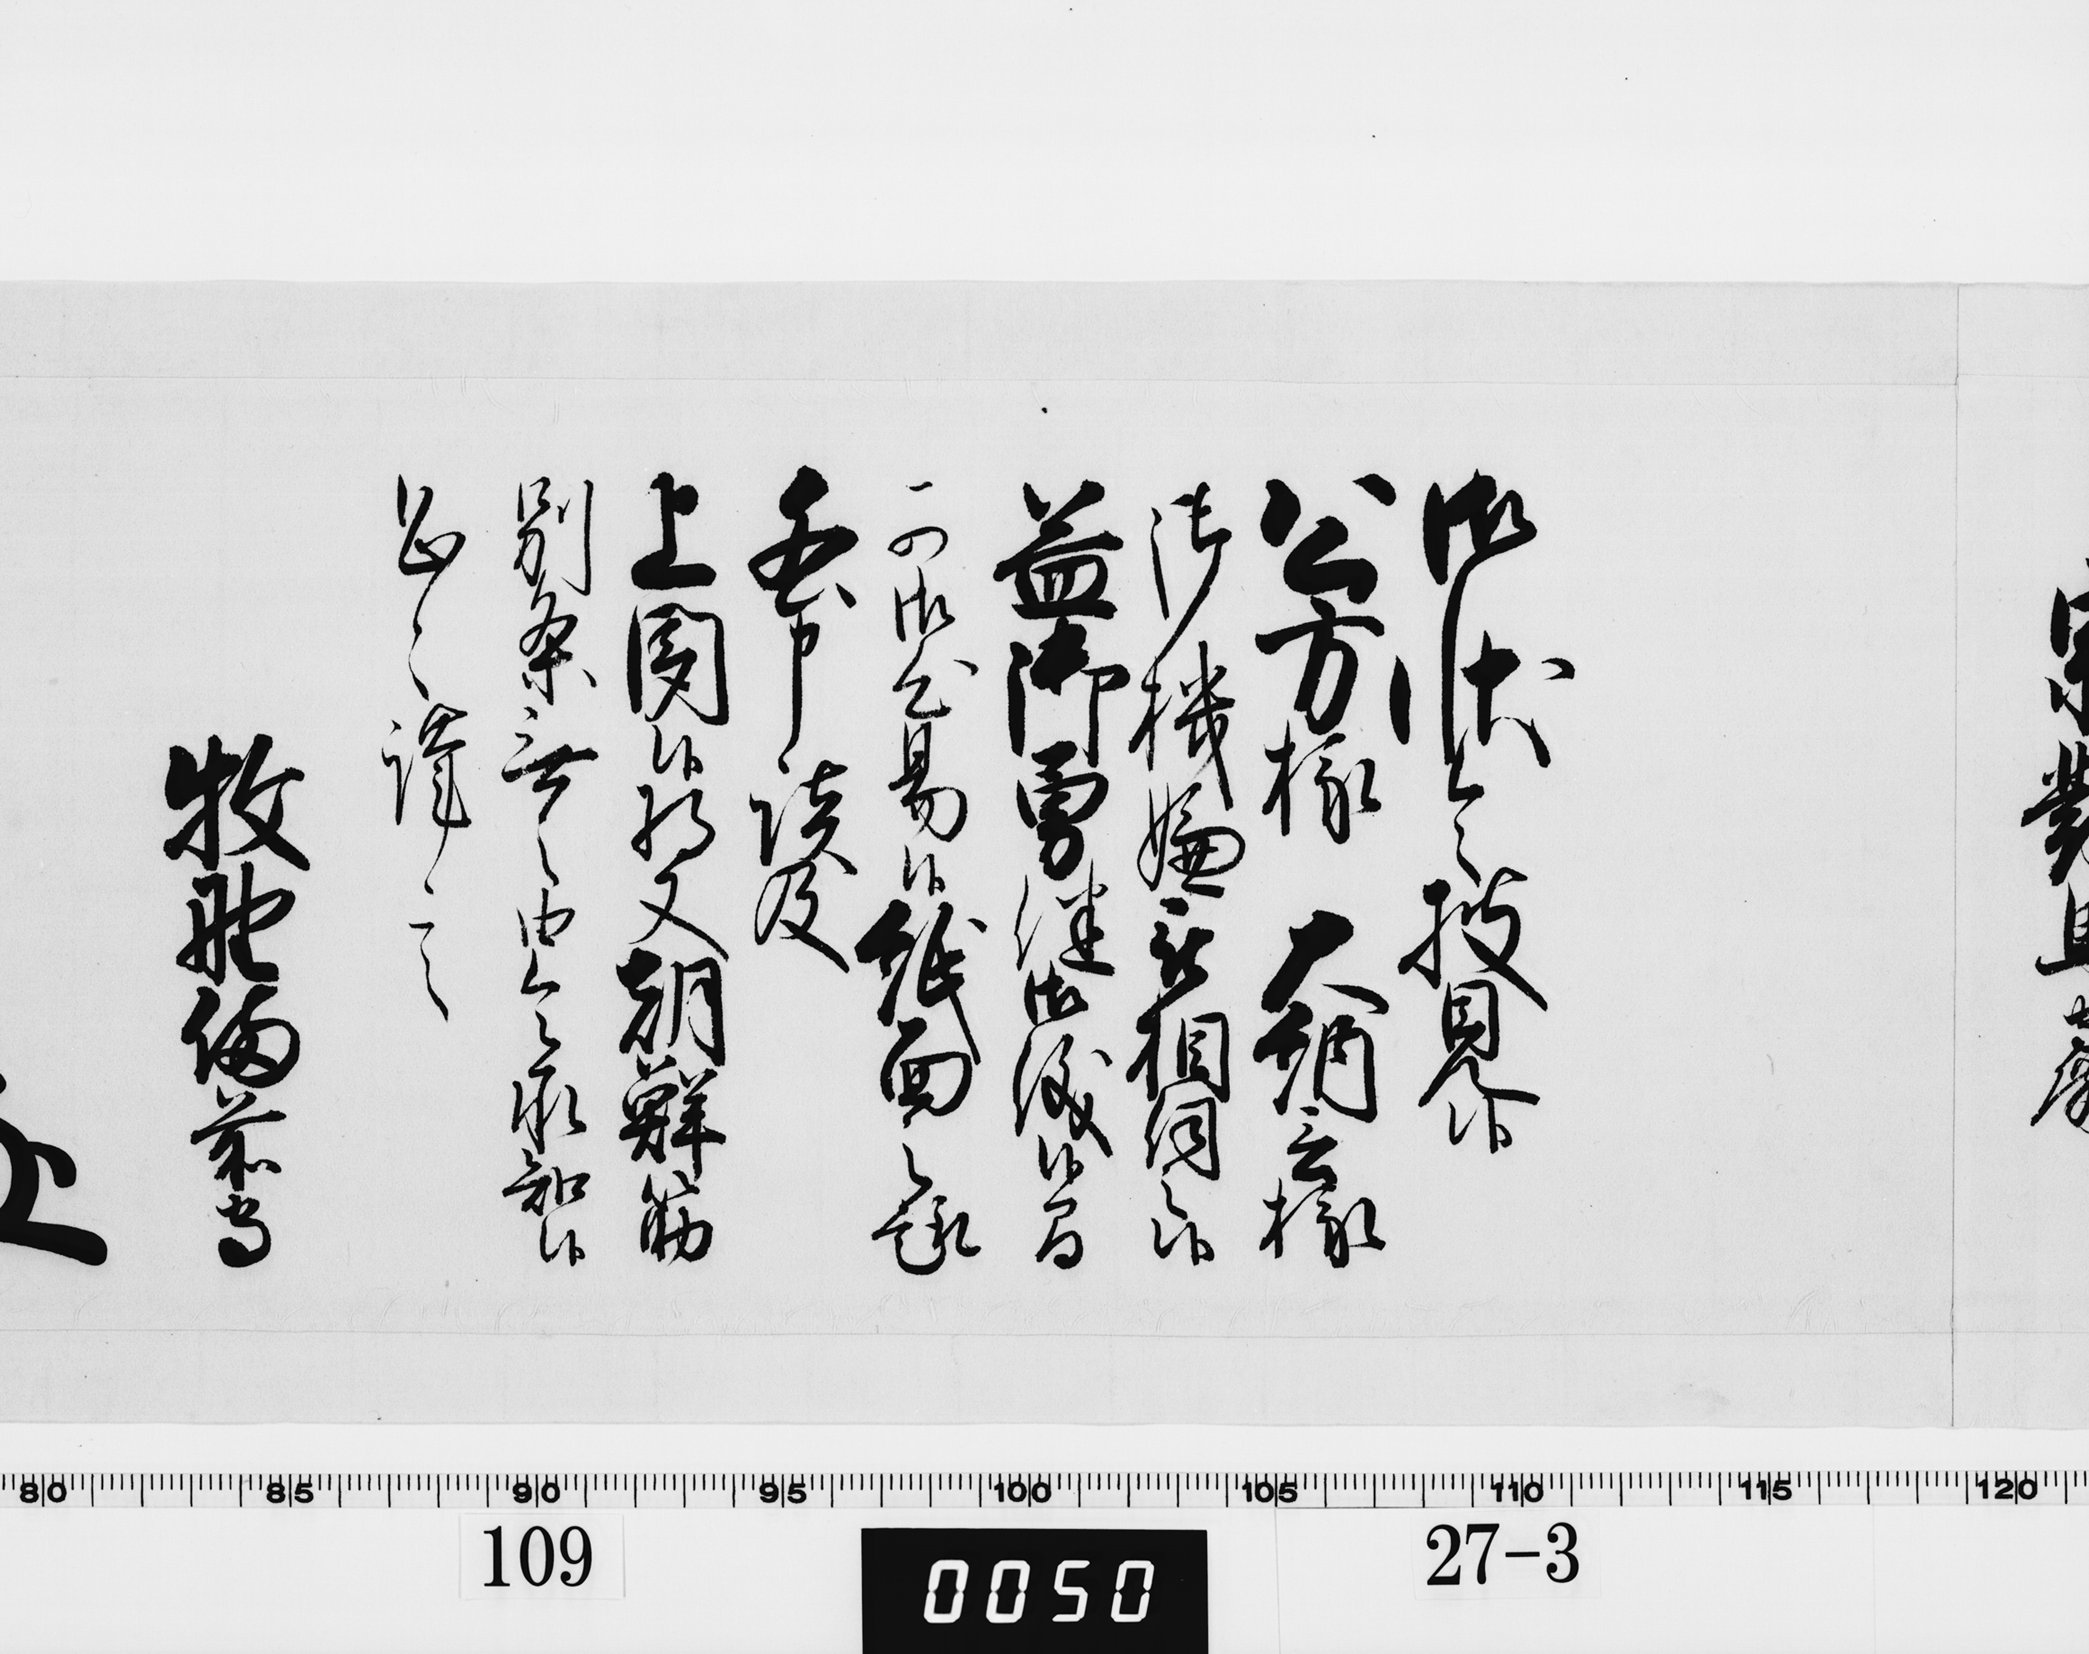 宗對馬
御状令披見候
公方様大納言様
御機嫌被相伺之候
益御勇健御儀候間
可御心易候紙面之趣
各申談及
上聞候将又朝鮮筋
別条無之由令承知候
恐々謹言
牧野備前守
80 85 90 95 100 105 110 115 120
109
0050
27-3